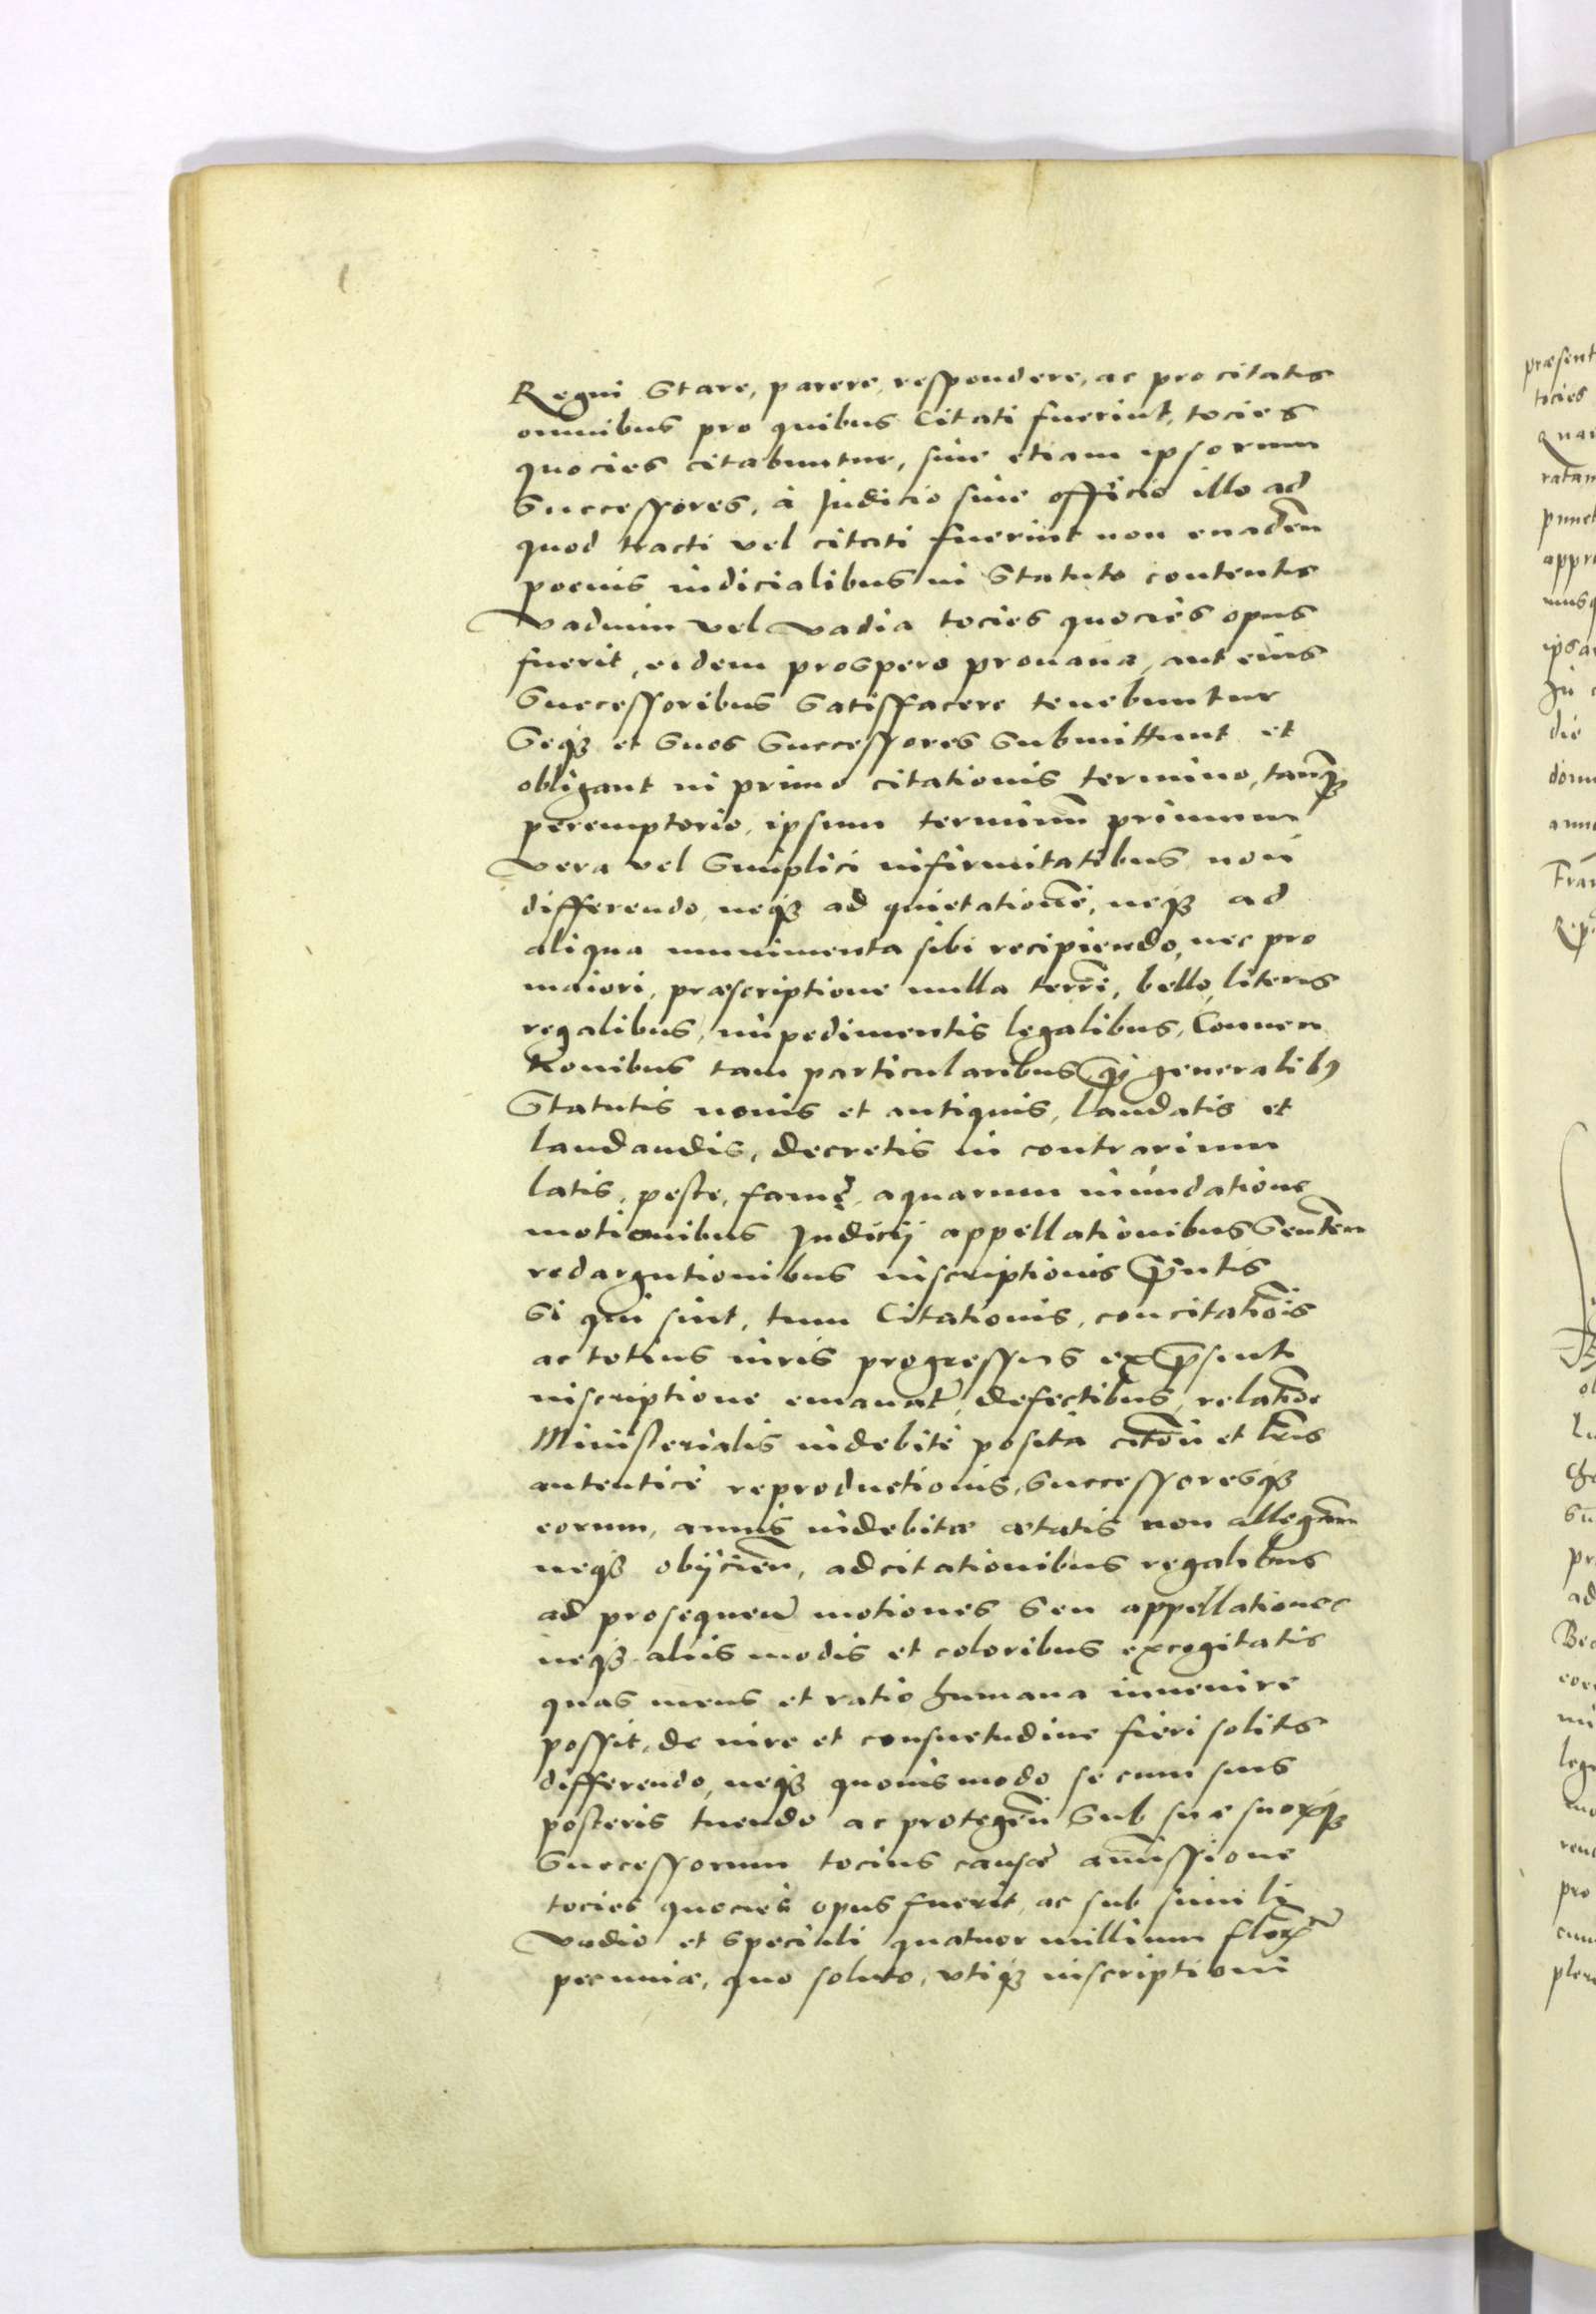 Regni stare, parere, respondere, ac pro citatis
omnibus pro quibus Citati fuerint, tocies
quocies citabuntur, siue etiam ipsorum
Successores, à Judicio siue officio illo ad
quod tracti vel citati fuerint non euaden̄
poenis iudicialibus in Statuto contentis
Vadium vel Vadia tocies quocies opus
fuerit, eidem prospero prouana, aut eius
Successoribus Satisfacere tenebuntur
Seqȝ et Suos Successores Submittunt et
obligant in primo citationis termino, tanqȝ
peremptorio, ipsum terminū primum
Vera vel Simplici infirmitatibus non
differendo, neqȝ ad quietationē, neqȝ ad
aliqua munimenta sibi recipiendo, nec pro
maiori, præscriptione nulla terrē, bello, literis
regalibus, impedimentis legalibus, Conuen
tionibus tam particularibus qȝ generalibꝰ
Statutis nouis et antiquis, laudatis et
laudandis, decretis in contrarium
latis, peste, famę, aquarum inundatione
motionibus Judicij appellationibus Senten̄
redargutionibus inscriptionis p̄ntis
Si qui sint, tum Citationis, concitatiōis
ac totius iuris progressus ex p̄senti
inscriptione emanat̄, defectibus, relatiōe
Ministerialis indebitè posita citōn et lrīs
autenticè reproductionis, Successoresqȝ
eorum, annis indebitæ ætatis non allegan̄
neqȝ obijcien̄, adcitationibus regalibus
ad prosequen̄ motiones Seu appellationes
neqȝ alijs modis et coloribus excogitatis
quas mens et ratio humana inuenire
possit, de iure et consuetudine fieri solitis
differendo, neqȝ quouis modo se cum suis
posteris tuendo ac protegen̄ Sub suæ suorꝝqȝ
Successorum tocius causæ amissione
tocies quocies opus fuerit, ac sub simili
Vadio et Speciali quatuor millium flor̄
pecuniæ, quo soluto, vtiqȝ inscriptioni